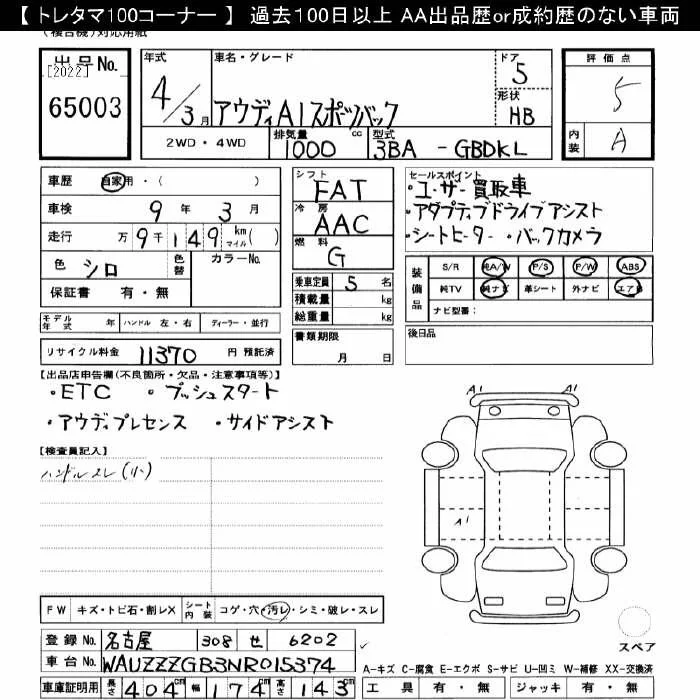 【 トレタマ100コーナー 】 過去100日以上 AA出品歴or成約歴のない車両
(複合機)対応用紙
出品No.
[2022]
65003
年式
4/3月
車名・グレード
アウディA1スポーツバック
ドア
5
形状
HB
2WD・4WD
排気量
1000 cc
型式
3BA - GBDKL
評価点
5
内装
A
車歴 自家用・( )
車検 9年 3月
走行 万 9千149 km マイル( )
色 シロ
色替
カラーNo.
保証書 有・無
モデル年式 年
ハンドル 左・右
ディーラー・並行
リサイクル料金 11370 円 預託済
シフト
FAT
冷房
AAC
燃料
G
乗車定員 5 名
積載量 kg
総重量 kg
書類期限
月 日
セールスポイント
・ユーザー買取車
・アダプティブドライブアシスト
・シートヒーター ・バックカメラ
装備品
S/R 純A/W P/S P/W ABS
純TV 純ナビ 革シート 外ナビ エアB
ナビ型番:
後日品
【出品店申告欄(不良箇所・欠品・注意事項等)】
・ETC ・プッシュスタート
・アウディプレセンス ・サイドアシスト
【検査員記入】
ハンドルスレ(小)
A1 A1
A1
スペア
FW キズ・トビ石・割レX
シート内装 コゲ・穴・汚レ・シミ・破レ・スレ
登録No. 名古屋 308 せ 6202
車台No. WAUZZZGB3NR015374
車庫証明用 長さ 404cm 幅 174cm 高さ 143cm
A-キズ C-腐食 E-エクボ S-サビ U-凹ミ W-補修 XX-交換済
工具 有・無 ジャッキ 有・無